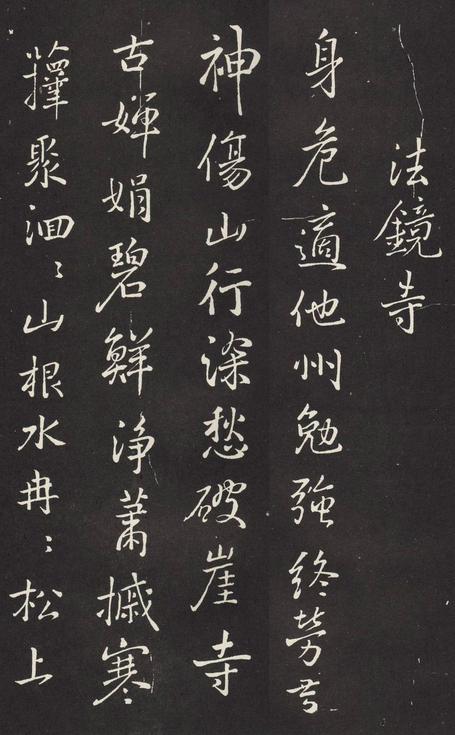 法鏡寺
身危適他州勉強終勞苦
神傷山行深愁破崖寺
古嬋娟碧鮮淨蕭摵寒
籜聚洄〻山根水冉〻松上